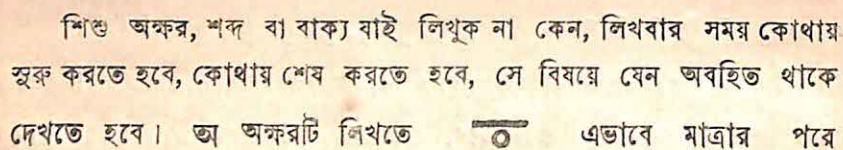 শিশু অক্ষর, শব্দ বা বাক্য যাই লিখুক না কেন, লিখবার সময় কোথায়
সুরু করতে হবে, কোথায় শেষ করতে হবে, সে বিষয়ে যেন অবহিত থাকে
দেখতে হবে। অ অক্ষরটি লিখতে এভাবে মাত্রার পরে